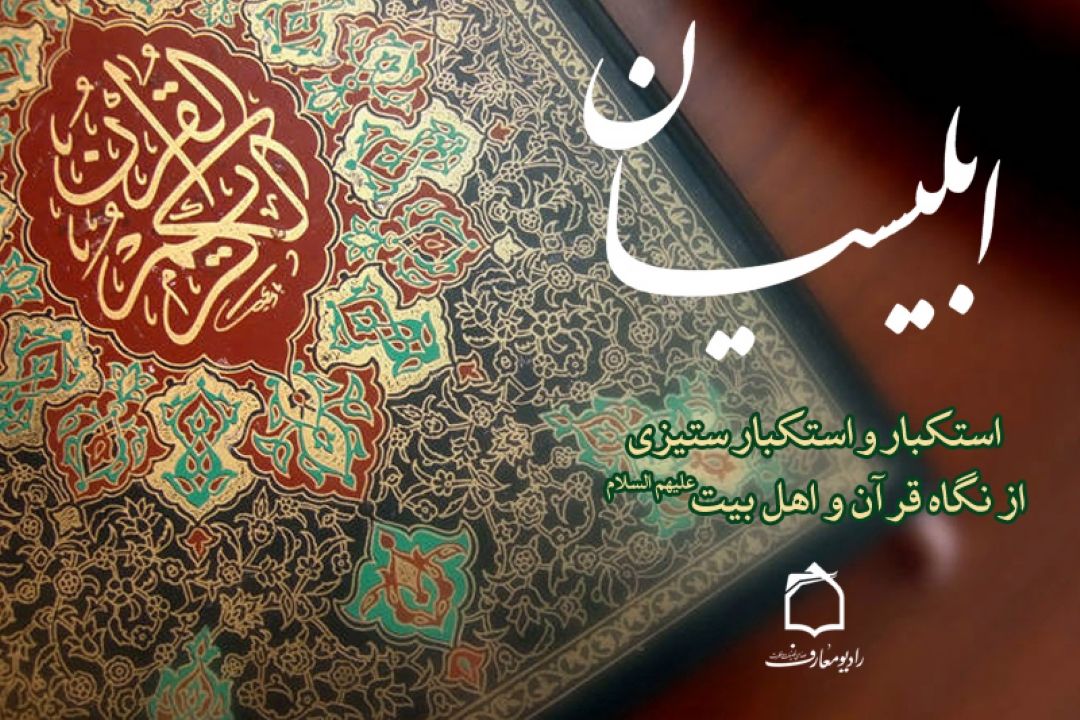 القرآن
الكريم
ابلیسیان
استکبار و استکبارستیزی
از نگاه قرآن و اهل بیت علیهم السلام
رادیو معارف